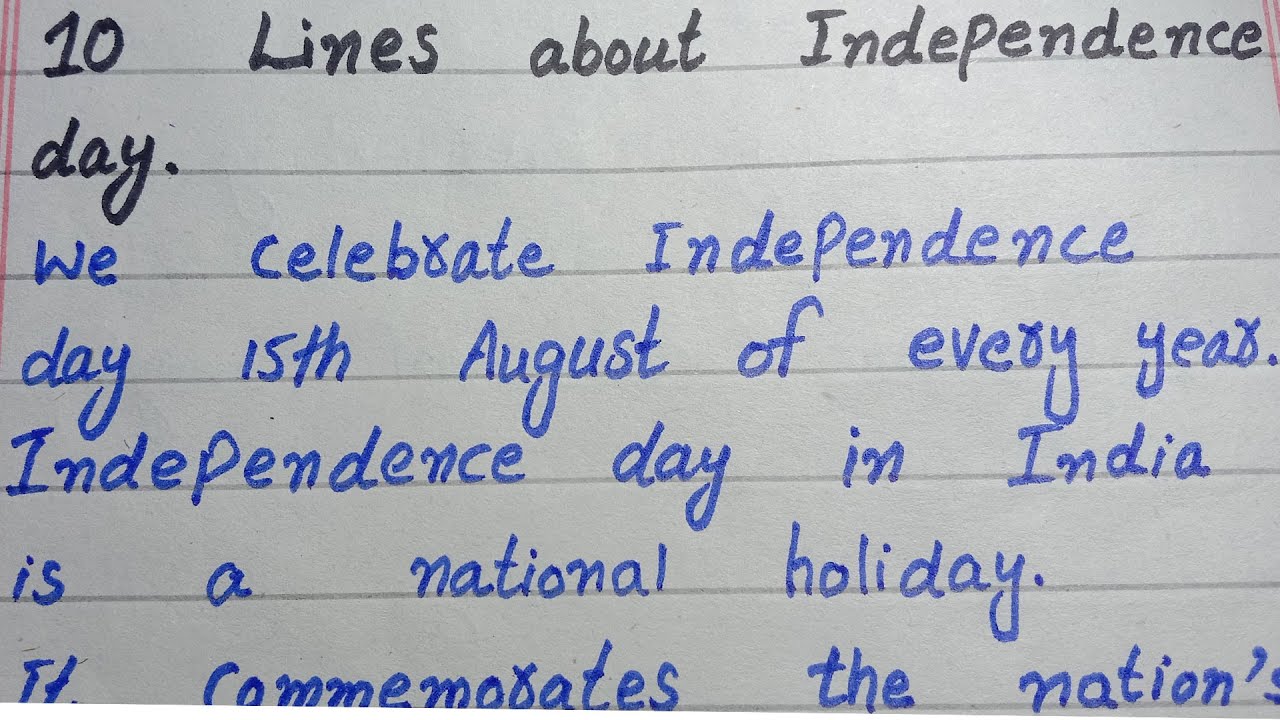 10 Lines about Independence
day.
We celebrate Independence
day 15th August of every year.
Independence day in India
is a national holiday.
It commemorates the nation's